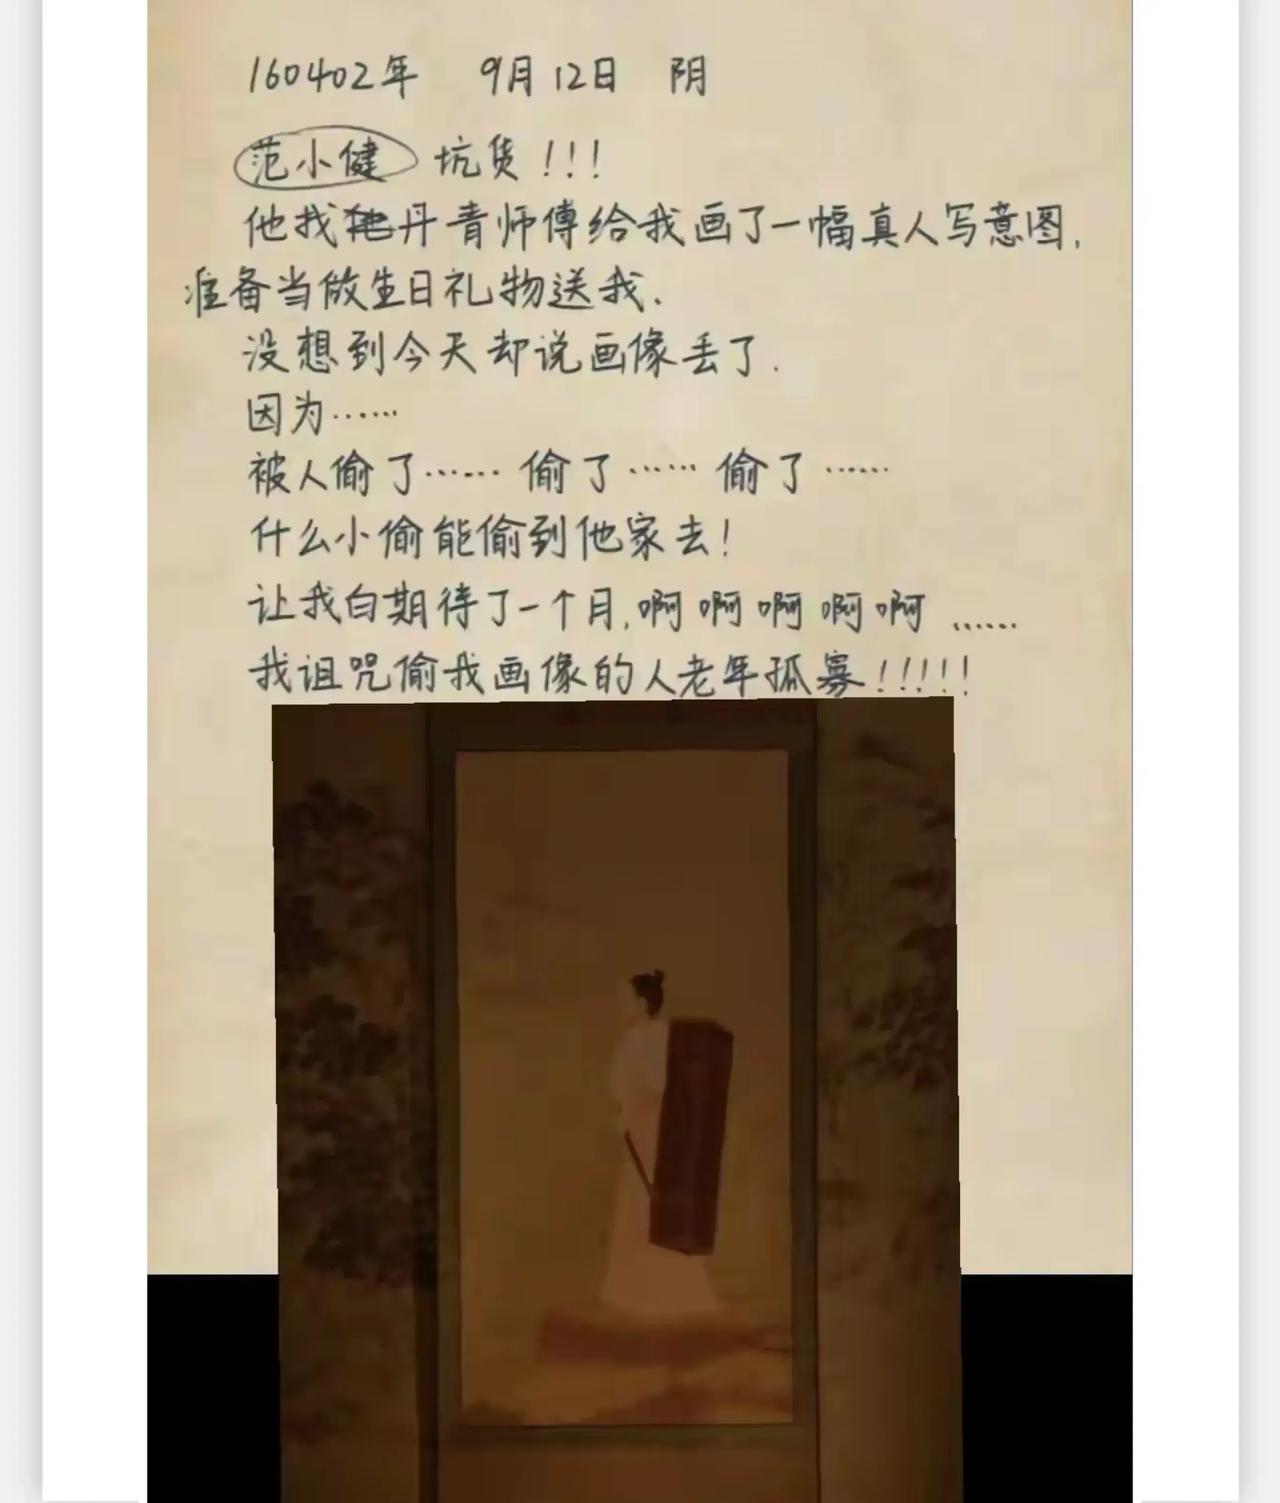 160402年 9月12日 阴
范小健 坑货!!!
他找丹青师傅给我画了一幅真人写意图,
准备当做生日礼物送我.
没想到今天却说画像丢了.
因为……
被人偷了…… 偷了…… 偷了……
什么小偷能偷到他家去!
让我白期待了一个月,啊啊啊啊啊……
我诅咒偷我画像的人老年孤寡!!!!!